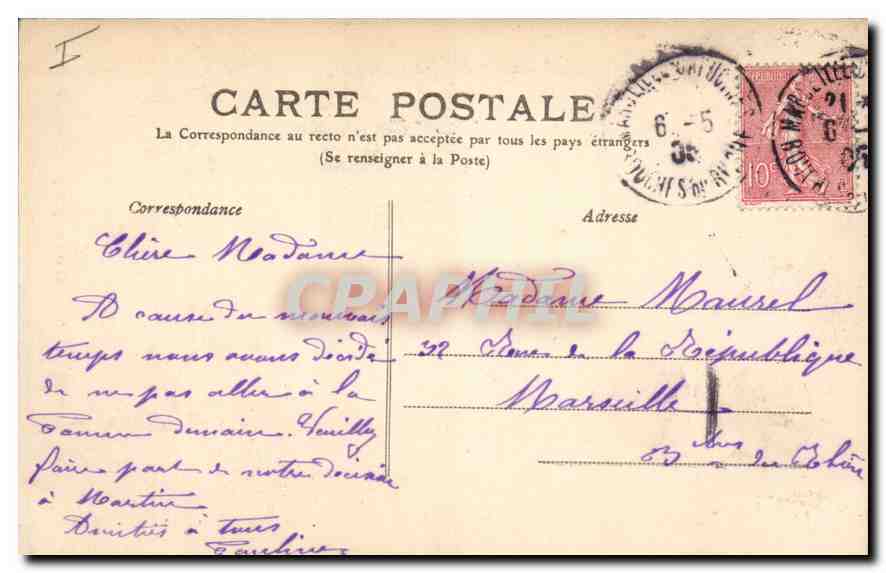 I
CARTE POSTALE
La Correspondance au recto n'est pas acceptée par tous les pays étrangers
(Se renseigner à la Poste)
Correspondance
Chère Madame
A cause du mauvais
temps nous avons décidé
de ne pas aller à la
demain. Veuillez
faire part de notre décision
à Martin
Amitiés à tous
Pauline
Adresse
Madame Maurel
32 Rue de la République
Marseille
Bches du Rhône
6 - 5
BOUCHES DU RHONE
10c
MARSEILLE
CPAPHIL